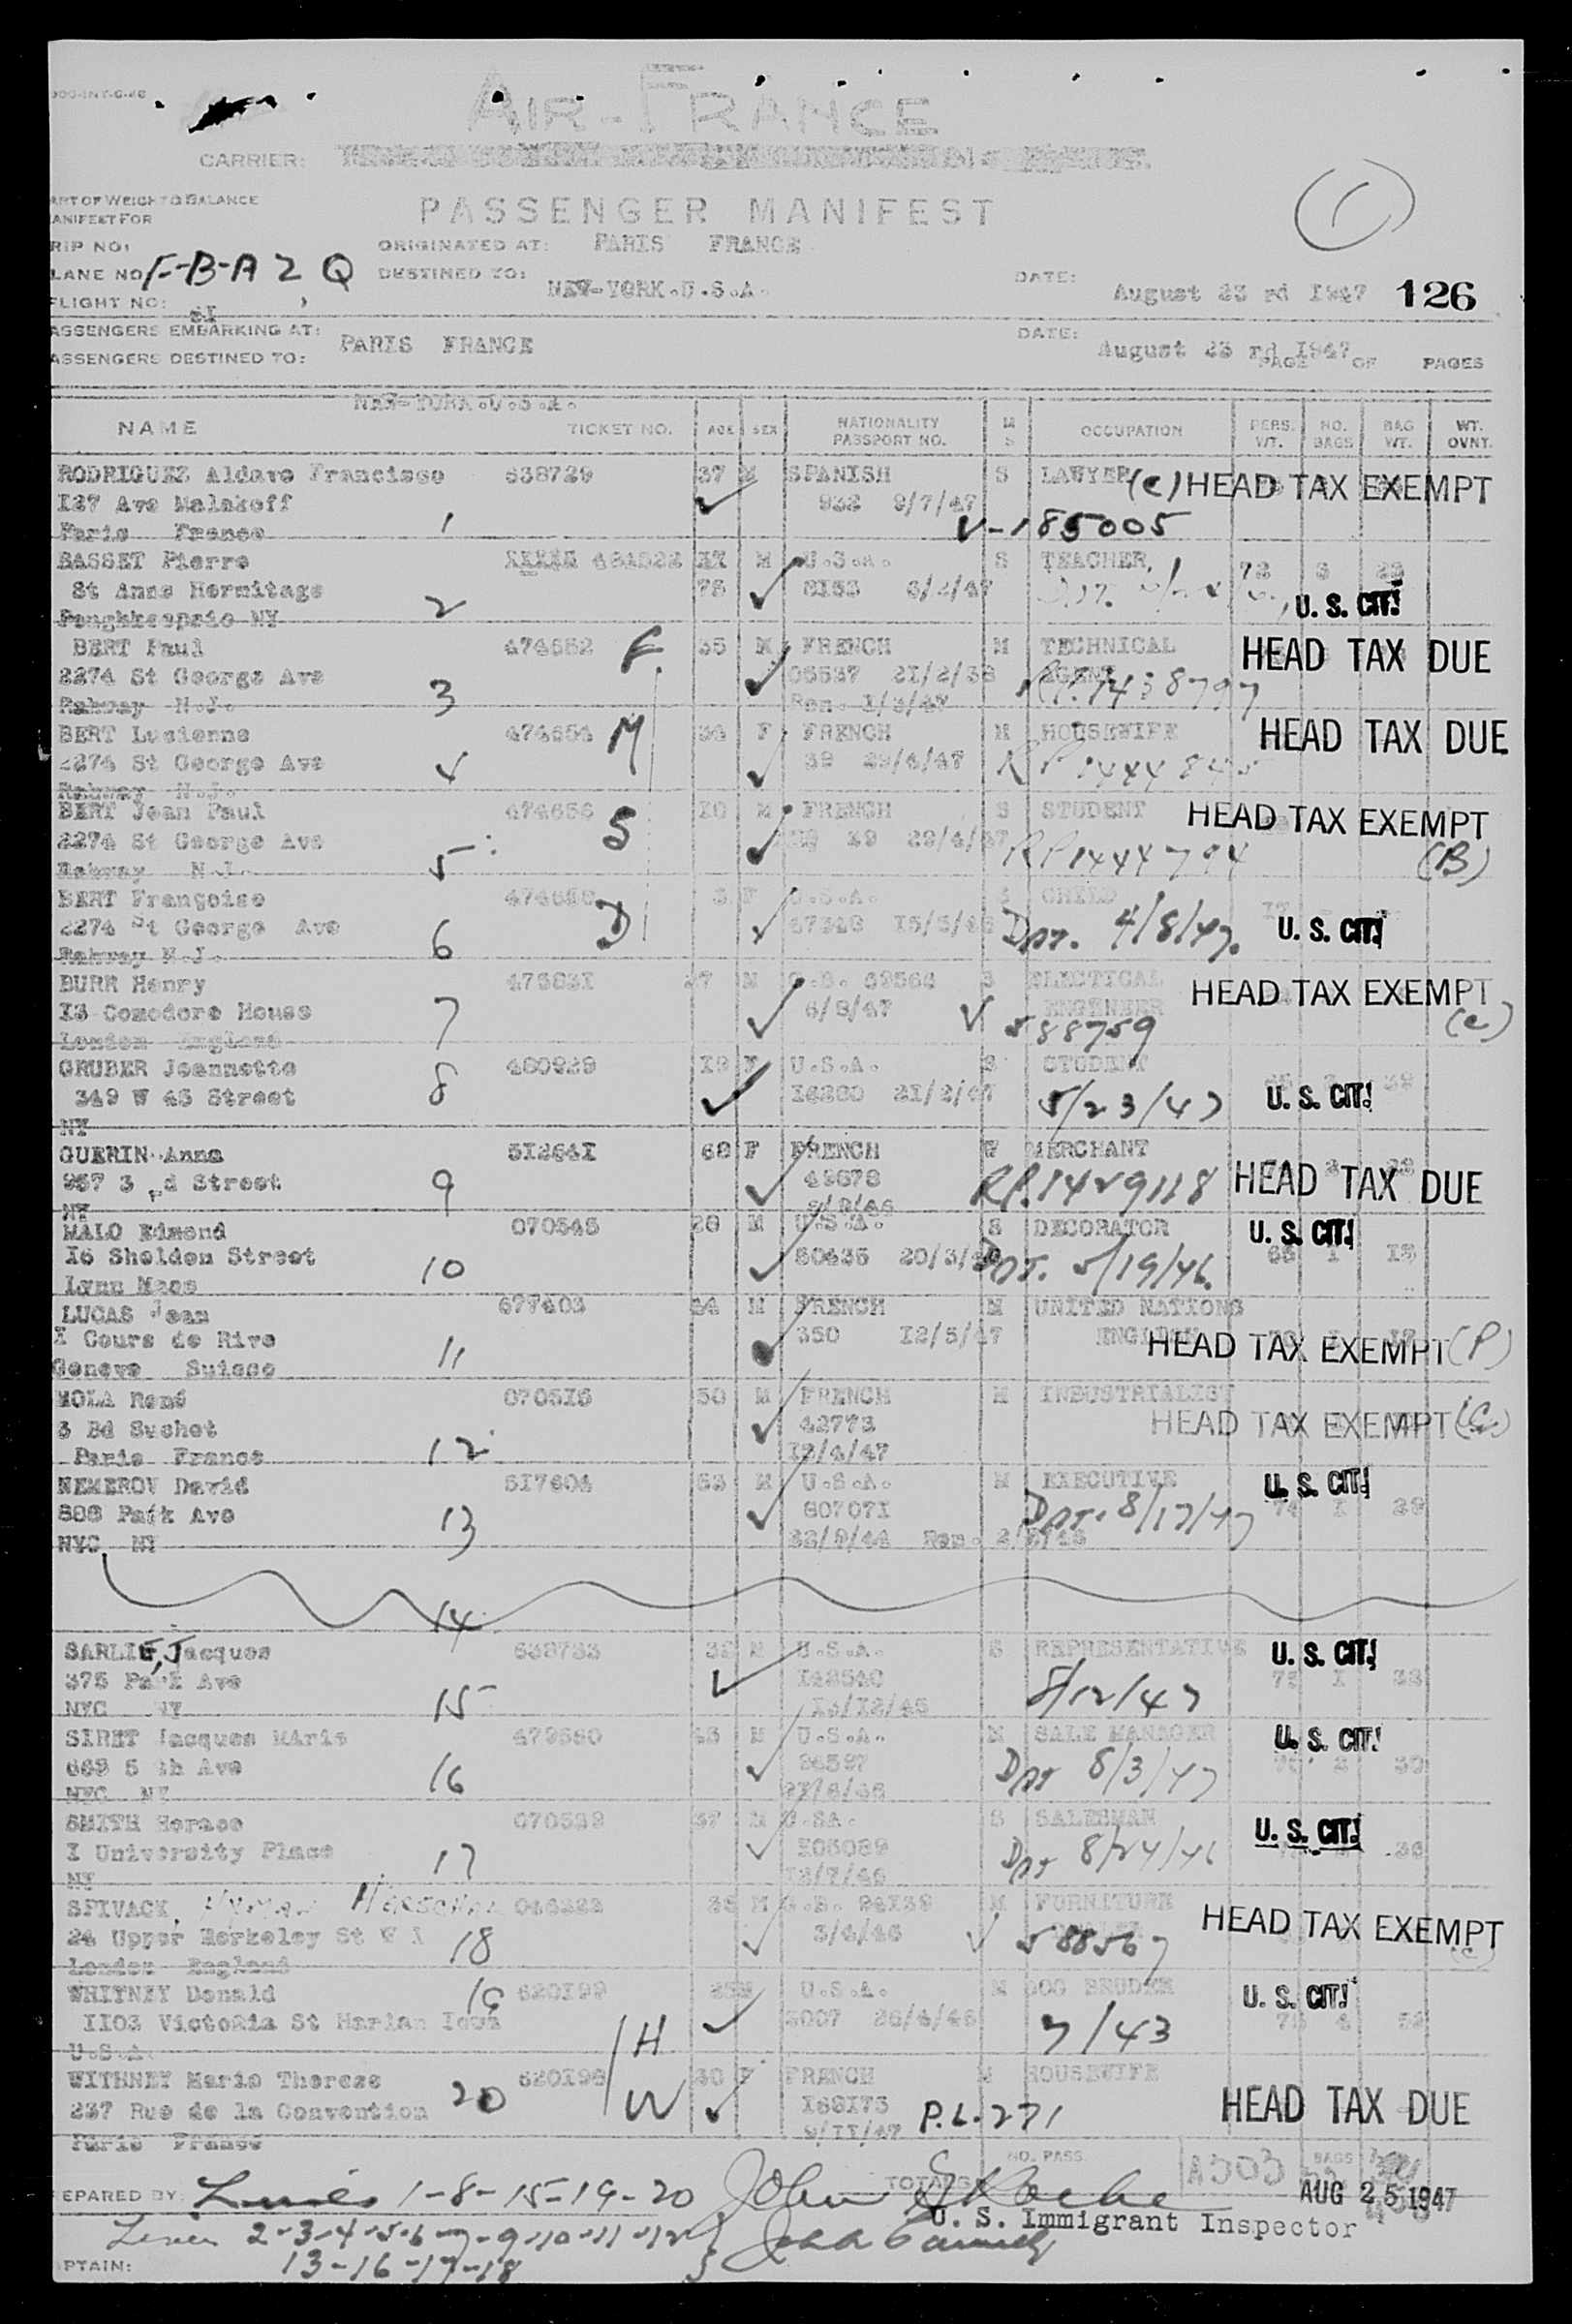 AIR-FRANCE
CARRIER:
PASSENGER MANIFEST
ART OF WEIGHT & BALANCE
ANIFEST FOR
RIP NO:
ORIGINATED AT: PARIS FRANCE
LANE NO F-B-A Z Q
DESTINED TO: NEW-YORK.U.S.A.
DATE: August 23 rd 1947 126
FLIGHT NO:
ASSENGERS EMBARKING AT: PARIS FRANCE
DATE: August 23 rd 1947
ASSENGERS DESTINED TO:
PAGE OF PAGES
NEW-YORK.U.S.A.
NAME TICKET NO. AGE SEX NATIONALITY PASSPORT NO. M S OCCUPATION PERS. WT. NO. BAGS BAG WT. WT. OVNT.
RODRIGUEZ Aldave Francisco 638729 37 M SPANISH S LAWYER (e) HEAD TAX EXEMPT
I27 Ave Malakoff 932 9/7/47
Paris France 1 V-185005
BASSET Pierre 484522 M U.S.A. S TEACHER 72 3 23
St Anns Hermitage 75 8I53 U. S. CIT!
Poughkeepsie NY 2
BERT Paul 474652 F. 35 M FRENCH M TECHNICAL HEAD TAX DUE
2274 St George Ave 05537 2I/2/38 AGENT
Rahway N.J. 3 RP.1438797
BERT Lucienne 474654 M 34 F FRENCH M HOUSEWIFE HEAD TAX DUE
2274 St George Ave 4 39 29/4/47 RP 1444845
Rahway N.J.
BERT Jean Paul 474656 S 10 M FRENCH S STUDENT HEAD TAX EXEMPT
2274 St George Ave 39 29/4/47 RP 1444794 (B)
Rahway N.J. 5
BERT Françoise 474658 D 3 F U.S.A. S CHILD
2274 St George Ave 6 Dpt. 4/8/47. U. S. CIT!
Rahway N.J.
BURR Henry 47583I 27 M G.B. 69564 S ELECTICAL HEAD TAX EXEMPT
I3 Comodore House 7 6/8/47 ENGENEER (e)
London England V 588759
GRUBER Jeannette 480929 I9 F U.S.A. S STUDENT 39
349 W 45 Street 8 I6280 2I/2/47 5/23/47 U. S. CIT!
NY
GUERIN Anna 5I264I 68 F FRENCH MERCHANT
957 3 rd Street 9 49678 RP.1429118 HEAD TAX DUE
NY
MALO Edmond 070545 28 M U.S.A. S DECORATOR U. S. CIT!
I6 Sheldon Street 10 50435 Dpt. 5/19/46. 65 I
Lynn Mass
LUCAS Jean 677403 44 M FRENCH M UNITED NATIONS
I Cours de Rive 11 350 I2/5/47 HEAD TAX EXEMPT (P)
Geneve Suisse
MOLA René 070516 50 M FRENCH M INDUSTRIALIST
3 Bd Suchet 42773 HEAD TAX EXEMPT (e)
Paris France 12 I9/4/47
NEMEROV David 5I7604 53 M U.S.A. M EXECUTIVE U. S. CIT!
888 Park Ave 13 60707I Dpt. 8/17/47 74 I 39
NYC NY
14
SARLIE, Jacques 638733 32 M U.S.A. S REPRESENTATIVE U. S. CIT!
375 Park Ave 8/12/47 I
NYC NY 15
SIRET Jacques Marie 479580 43 M U.S.A. M SALE MANAGER U. S. CIT!
663 5 th Ave 16 26597 Dpt 8/3/47 30
NYC NY
SMITH Horace 070539 37 M U.SA. S SALESMAN U. S. CIT!
I University Place 17 Dpt 8/24/46 36
NY
SPIVACK, 38 M G.B. M FURNITURE HEAD TAX EXEMPT
24 Upper Berkeley St W I 18 3/4/46 V 588567
London England
WHITNEY Donald 19 620I99 M U.S.A. M U. S. CIT!
II03 Victoria St Harlan Iowa H 7/43
U.S.A.
WITHNEY Marie Therese 620I98 30 F FRANCH M HOUSEWIFE
237 Rue de la Convention 20 W I68I73 P.L.271 HEAD TAX DUE
Paris France
NO. PASS. BAGS
EPARED BY: Lines 1-8-15-19-20 TOTALS AUG 25 1947
U. S. Immigrant Inspector
Lines 2-3-4-5-6-7-9-10-11-12
PTAIN: 13-16-17-18